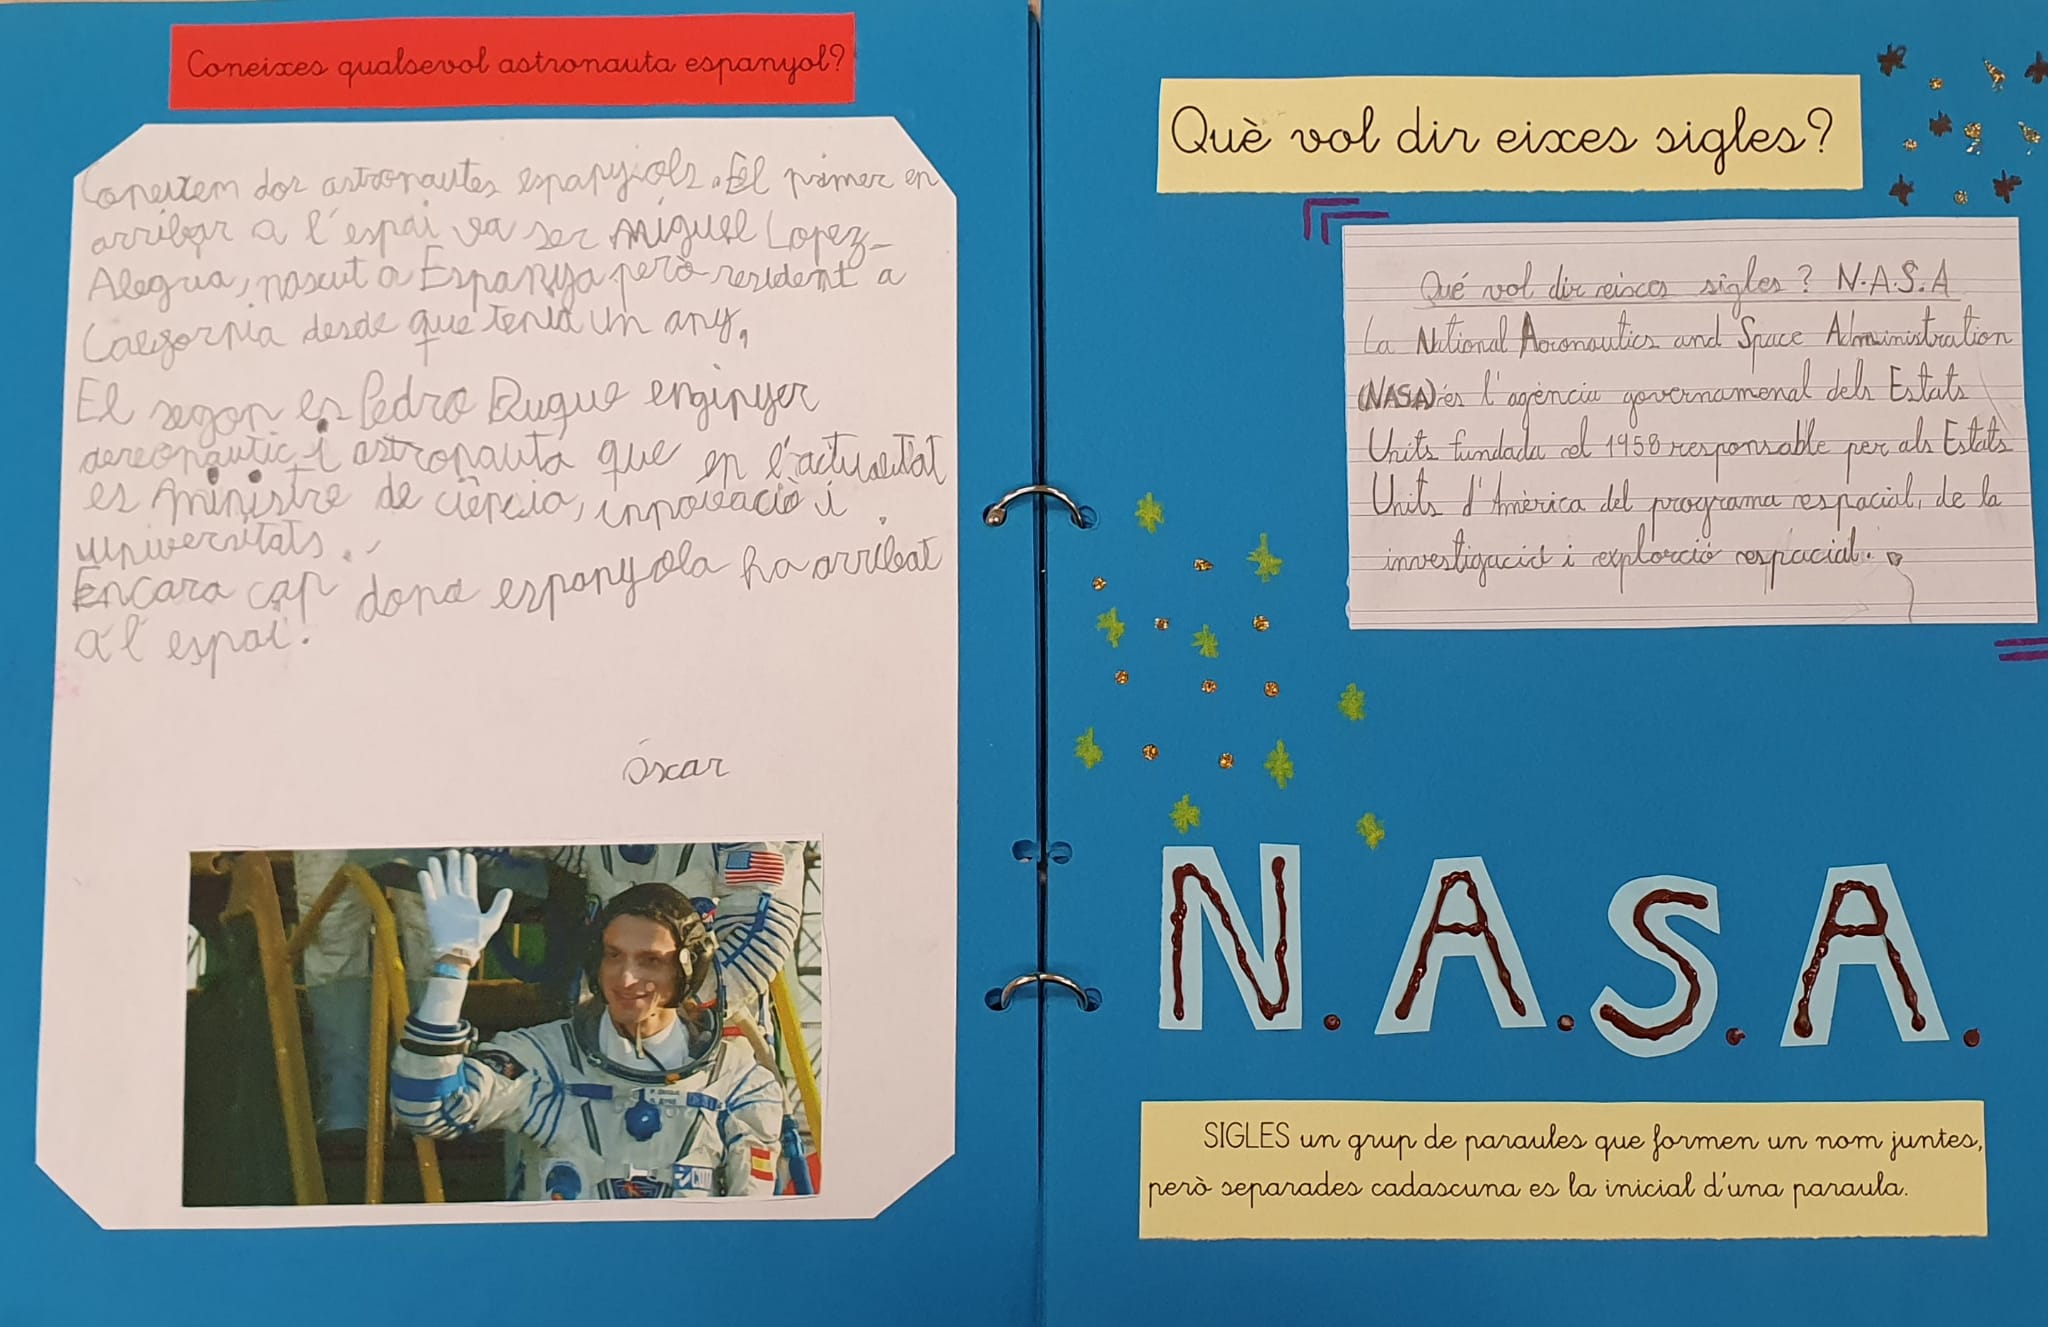 Coneixes qualsevol astronauta espanyol?
Coneixem dos astronautes espanyols. El primer en
arribar a l'espai va ser Miguel Lopez-
Alegria, nascut a Espanya però resident a
California desde que tenia un any.
El segon es Pedro Duque enginyer
aereonautic i astronauta que en l'actualitat
es ministre de ciència, innovació i
universitats.
Encara cap dona espanyola ha arribat
a l'espai.
Óscar
P. DUQUE
Què vol dir eixes sigles?
Qué vol dir eixes sigles? N.A.S.A
La National Aeronautics and Space Administration
(NASA) és l'agència governamenal dels Estats
Units fundada el 1958 responsable per als Estats
Units d'Amèrica del programa espacial, de la
investigació i explorció espacial.
N.A.S.A.
SIGLES un grup de paraules que formen un nom juntes,
però separades cadascuna es la inicial d'una paraula.